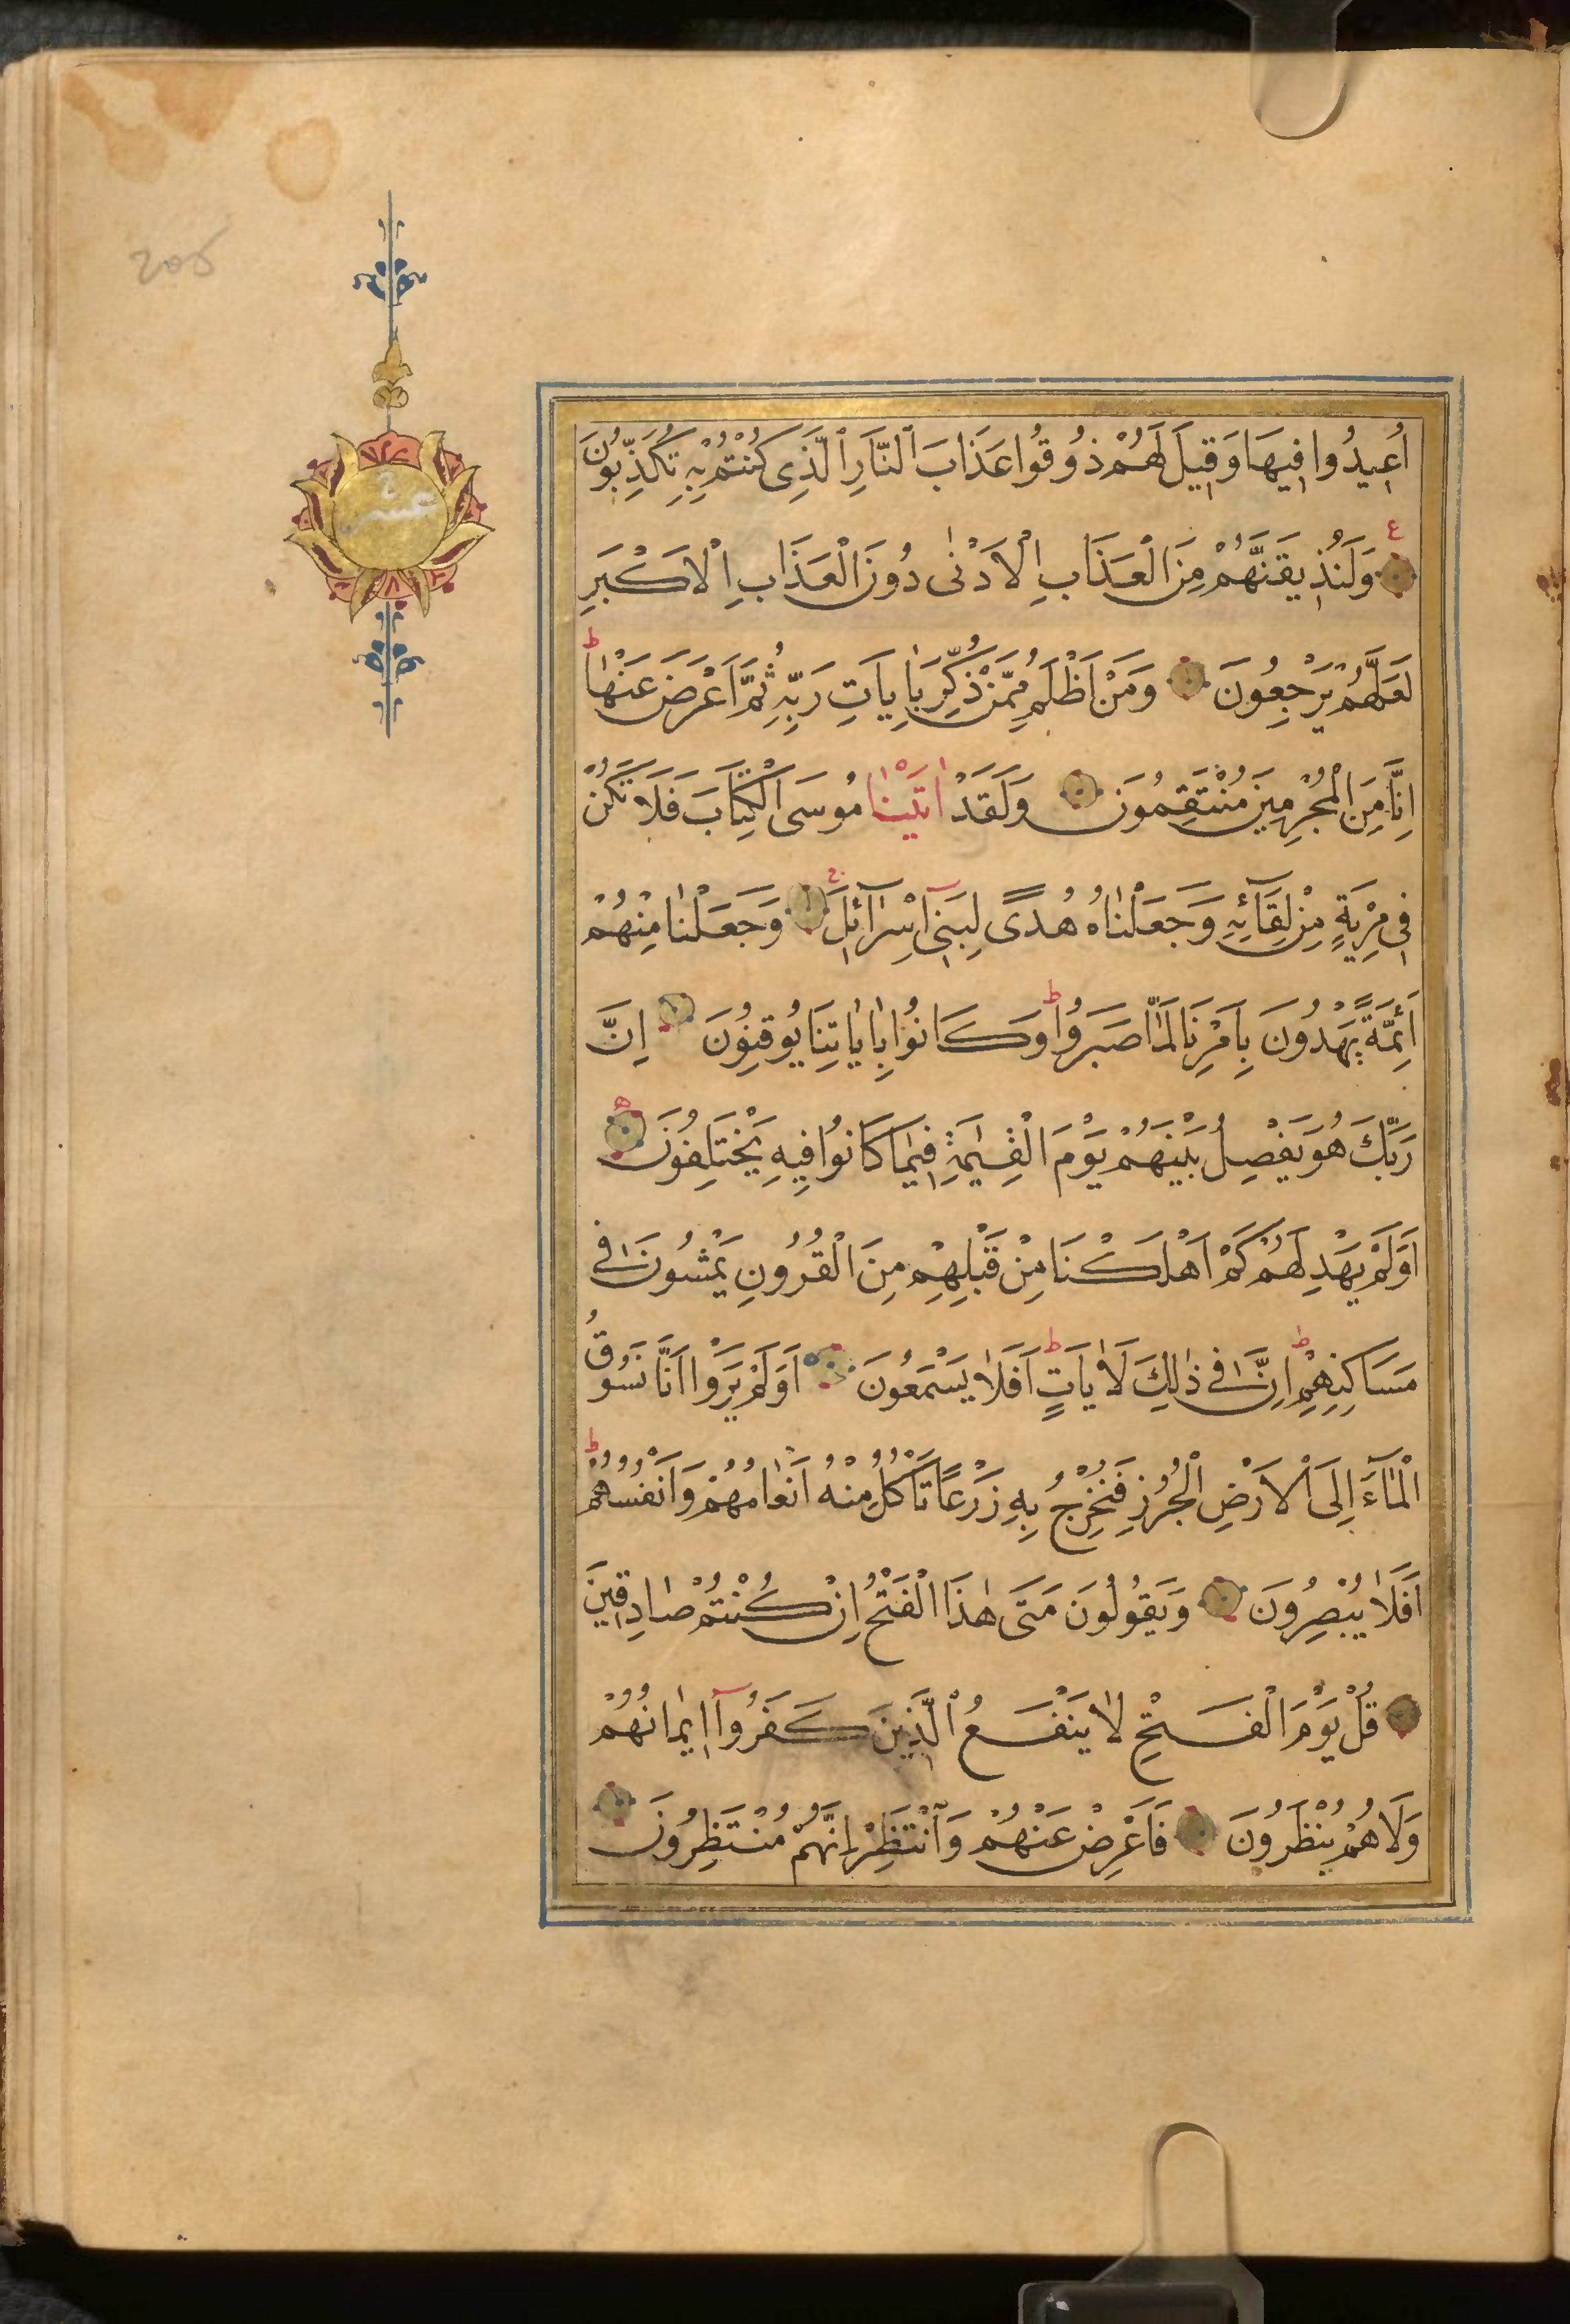 اُعِيدُوا فِيهَا وَقِيلَ لَهُمْ ذُوقُوا عَذَابَ النَّارِ الَّذِى كُنْتُمْ بِهِ تُكَذِّبُونَ
ع
وَلَنُذِيقَنَّهُمْ مِنَ الْعَذَابِ الْاَدْنٰى دُونَ الْعَذَابِ الْاَكْبَرِ
لَعَلَّهُمْ يَرْجِعُونَ وَمَنْ اَظْلَمُ مِمَّنْ ذُكِّرَ بِاٰيَاتِ رَبِّهِ ثُمَّ اَعْرَضَ عَنْهَا ط
اِنَّا مِنَ الْمُجْرِمِينَ مُنْتَقِمُونَ وَلَقَدْ اٰتَيْنَا مُوسَى الْكِتَابَ فَلَا تَكُنْ
فِى مِرْيَةٍ مِنْ لِقَآئِهِ وَجَعَلْنَاهُ هُدًى لِبَنِىٓ اِسْرَآئِلَ وَجَعَلْنَا مِنْهُمْ
اَئِمَّةً يَهْدُونَ بِاَمْرِنَا لَمَّا صَبَرُوا ط وَكَانُوا بِاٰيَاتِنَا يُوقِنُونَ اِنَّ
رَبَّكَ هُوَ يَفْصِلُ بَيْنَهُمْ يَوْمَ الْقِيٰمَةِ فِيمَا كَانُوا فِيهِ يَخْتَلِفُونَ
اَوَلَمْ يَهْدِ لَهُمْ كَمْ اَهْلَكْنَا مِنْ قَبْلِهِمْ مِنَ الْقُرُونِ يَمْشُونَ فِى
مَسَاكِنِهِمْ ط اِنَّ فِى ذٰلِكَ لَاٰيَاتٍ ط اَفَلَا يَسْمَعُونَ اَوَلَمْ يَرَوْا اَنَّا نَسُوقُ
الْمَآءَ اِلَى الْاَرْضِ الْجُرُزِ فَنُخْرِجُ بِهِ زَرْعًا تَاْكُلُ مِنْهُ اَنْعَامُهُمْ وَاَنْفُسُهُمْ ط
اَفَلَا يُبْصِرُونَ وَيَقُولُونَ مَتَى هٰذَا الْفَتْحُ اِنْ كُنْتُمْ صَادِقِينَ
قُلْ يَوْمَ الْفَتْحِ لَا يَنْفَعُ الَّذِينَ كَفَرُوٓا اِيمَانُهُمْ
وَلَا هُمْ يُنْظَرُونَ فَاَعْرِضْ عَنْهُمْ وَانْتَظِرْ اِنَّهُمْ مُنْتَظِرُونَ